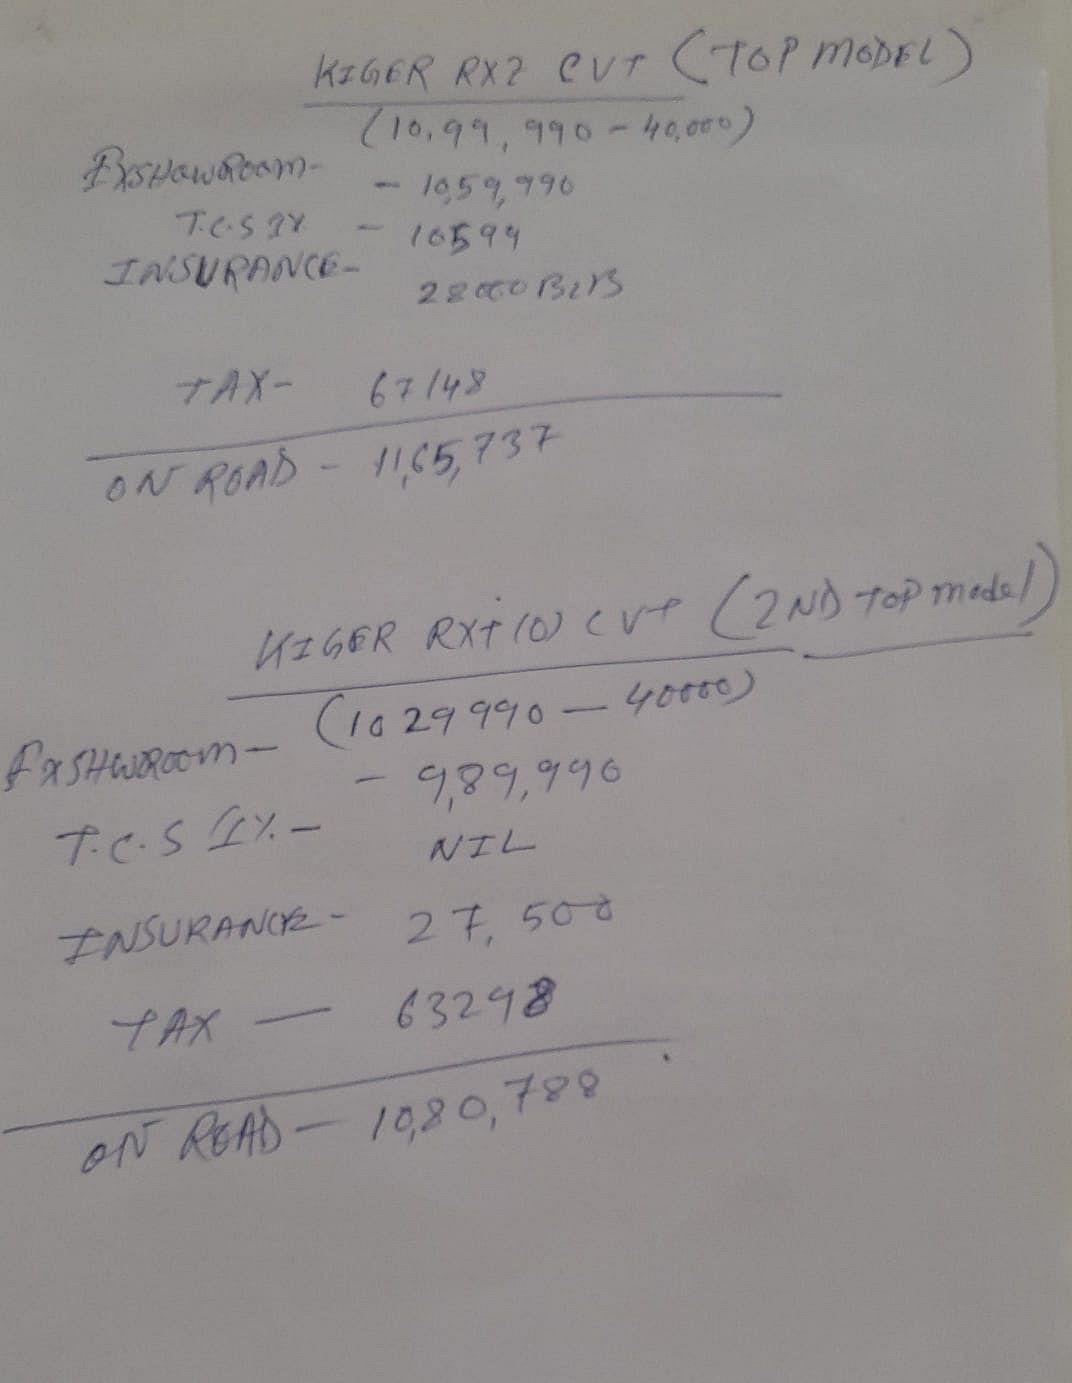 KIGER RXZ CVT (TOP MODEL)
(10,99,990 - 40,000)
EXSHOWROOM- - 10,59,990
T.C.S 1% - 10599
INSURANCE- 28000 B2B
TAX- 67148
ON ROAD - 11,65,737
KIGER RXT(O) CVT (2ND TOP model)
(1029990 - 40000)
EXSHWROOM- - 9,89,990
T.C.S (1%.- NIL
INSURANCE- 27,500
TAX - 63298
ON ROAD - 10,80,788